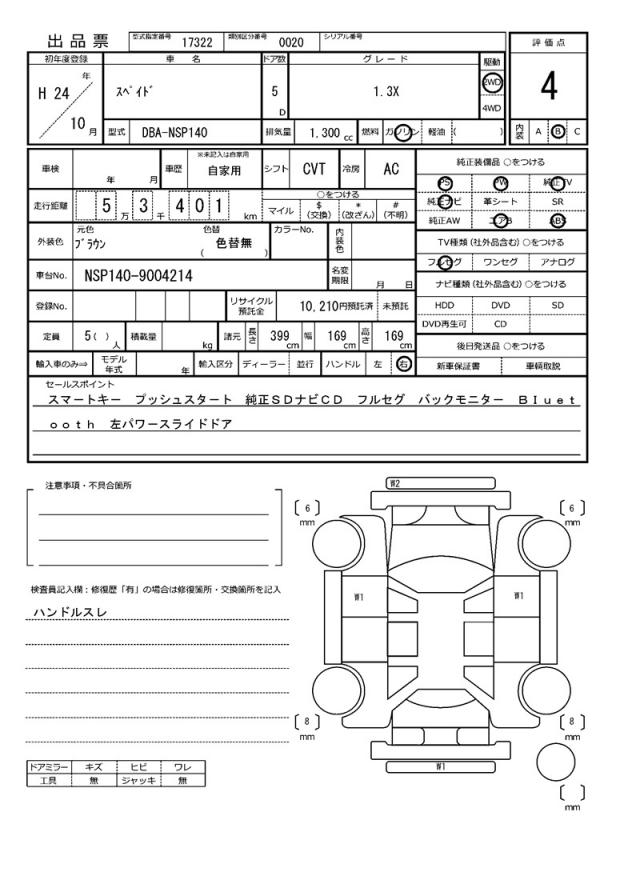 出品票 型式指定番号 17322 類別区分番号 0020 シリアル番号
初年度登録 車名 ドア数 グレード 駆動 評価点
H 24 年 ｽﾍﾟｲﾄﾞ 5 D 1.3X 2WD 4WD 4
10 月 型式 DBA-NSP140 排気量 1.300 cc 燃料 ガソリン 軽油 ( ) 内装 A B C
車検 年 月 車歴 ※未記入は自家用 自家用 シフト CVT 冷房 AC
走行距離 5 万 3 千 4 0 1 km ○をつける
マイル $ (交換) * (改ざん) # (不明)
外装色 元色 ﾌﾞﾗｳﾝ 色替 色替無 ( ) カラーNo. 内装色
車台No. NSP140-9004214 名変期限 月 日
登録No. リサイクル預託金 10,210円預託済 未預託
定員 5( ) 人 積載量 kg 諸元 長さ 399 cm 幅 169 cm 高さ 169 cm
輸入車のみ⇒ モデル年式 年 輸入区分 ディーラー 並行 ハンドル 左 右
純正装備品 ○をつける
PS PW 純正TV
純正ナビ 革シート SR
純正AW エアB ABS
TV種類 (社外品含む) ○をつける
フルセグ ワンセグ アナログ
ナビ種類 (社外品含む) ○をつける
HDD DVD SD
DVD再生可 CD
後日発送品 ○をつける
新車保証書 車輌取説
セールスポイント
スマートキー プッシュスタート 純正ＳＤナビＣＤ フルセグ バックモニター Ｂｌｕｅｔ
ｏｏｔｈ 左パワースライドドア
注意事項・不具合箇所
検査員記入欄：修復歴「有」の場合は修復箇所・交換箇所を記入
ハンドルスレ
ドアミラー キズ ヒビ ワレ
工具 無 ジャッキ 無
W2
6 mm
6 mm
W1
W1
8 mm
8 mm
W1
mm